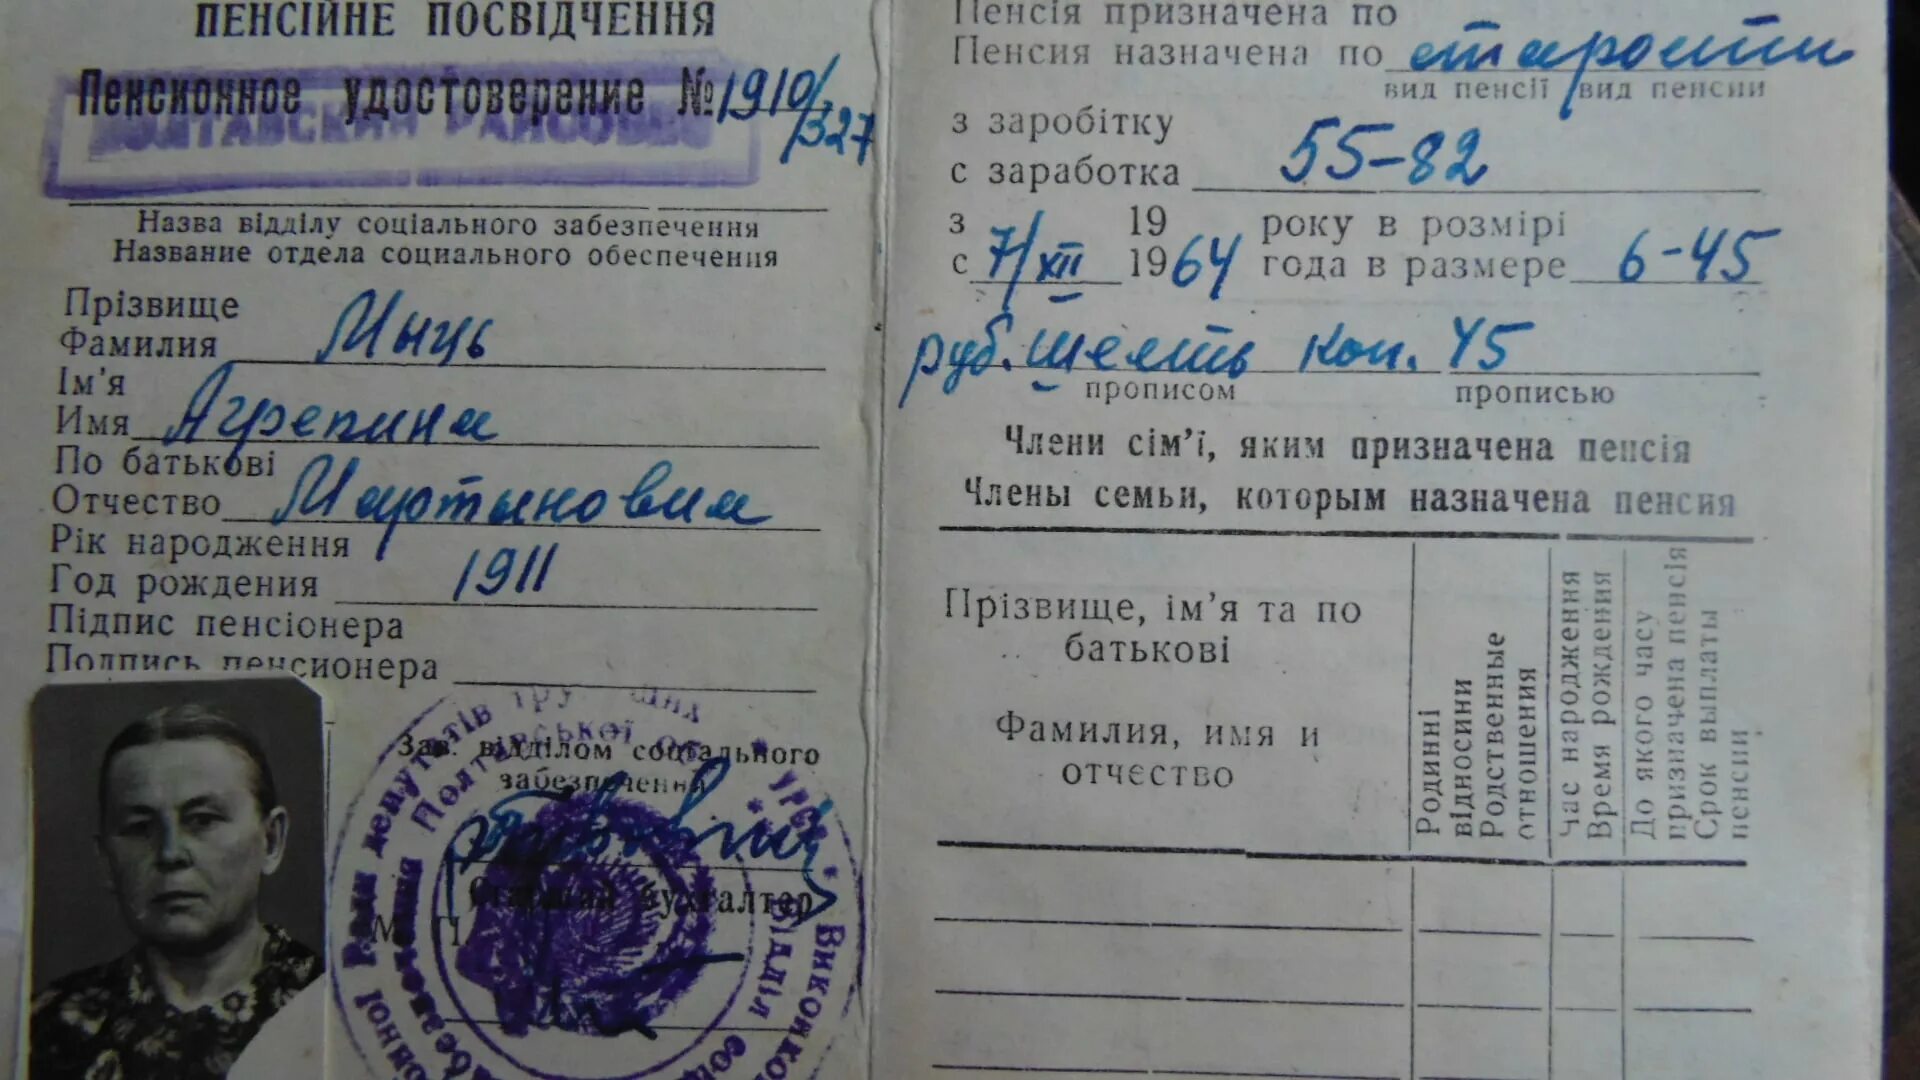 ПЕНСІЙНЕ ПОСВІДЧЕННЯ
Пенсионное удостоверение №1910/327
ПОЛТАВСКИЙ РАЙСОБЕС
Назва відділу соціального забезпечення
Название отдела социального обеспечения
Прізвище
Фамилия Мыць
Ім'я
Имя Агрепина
По батькові
Отчество Мартыновна
Рік народження
Год рождения 1911
Підпис пенсіонера
Подпись пенсионера
Зав. відділом соціального
забезпечення
Старший бухгалтер
М. П.
Пенсія призначена по
Пенсия назначена по старости
вид пенсії вид пенсии
з заробітку
с заработка 55-82
з 19 року в розмірі
с 7/XII 1964 года в размере 6-45
руб. шесть коп. 45
прописом прописью
Члени сім'ї, яким призначена пенсія
Члены семьи, которым назначена пенсия
Прізвище, ім'я та по
батькові
Фамилия, имя и
отчество
Родинні
відносини
Родственные
отношения
Час народження
Время рождения
До якого часу
призначена пенсія
Срок выплаты
пенсии